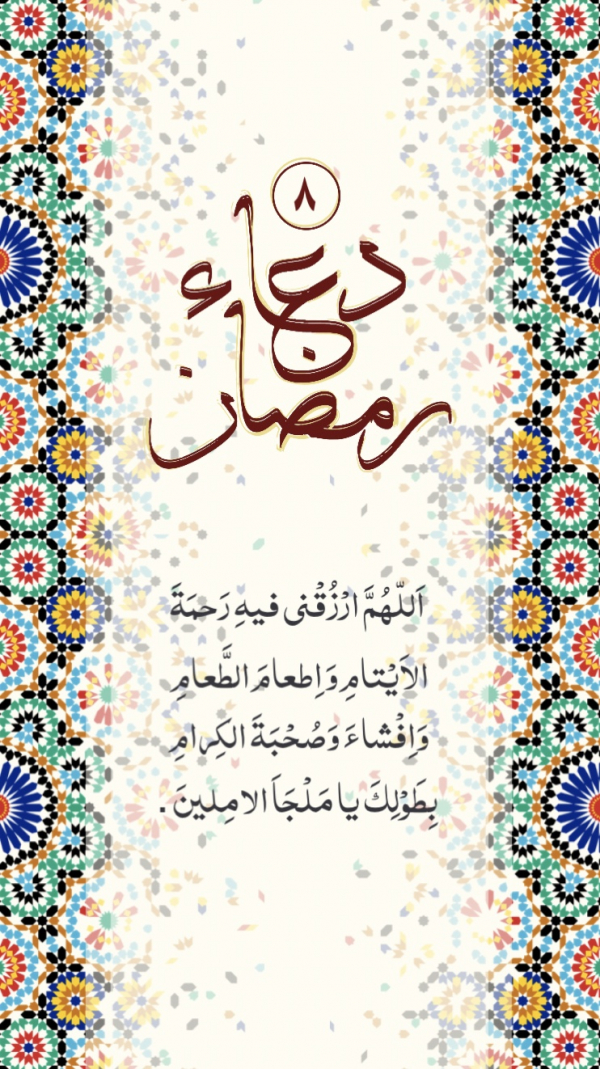 ٨
دعاء
رمضان
اَللّهُمَّ ارْزُقْنی فیهِ رَحمَةَ
الاَیْتامِ وَاِطعامَ الطَّعامِ
وَاِفْشاءَ وَصُحْبَةَ الکِرامِ
بِطَوْلِكَ یا مَلْجَاَ الامِلینَ .